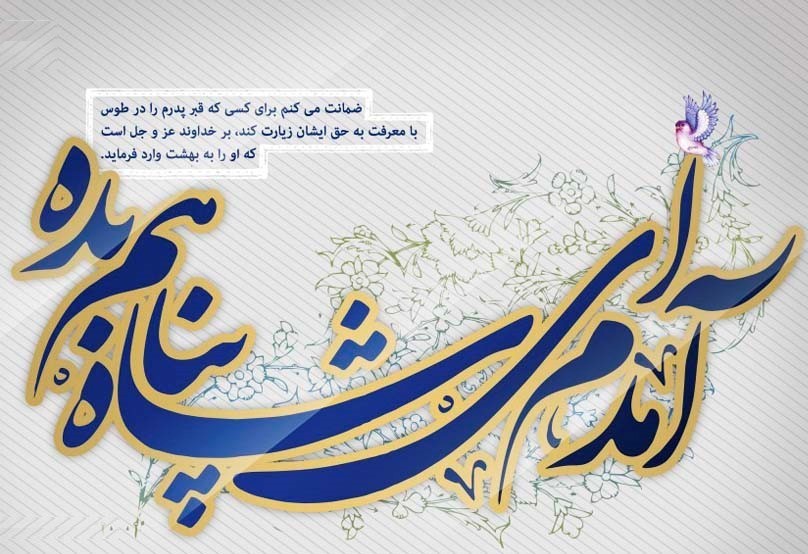 ضمانت می کنم برای کسی که قبر پدرم را در طوس
با معرفت به حق ایشان زیارت کند، بر خداوند عز و جل است
که او را به بهشت وارد فرماید.
آمدم ای شاه پناهم بده